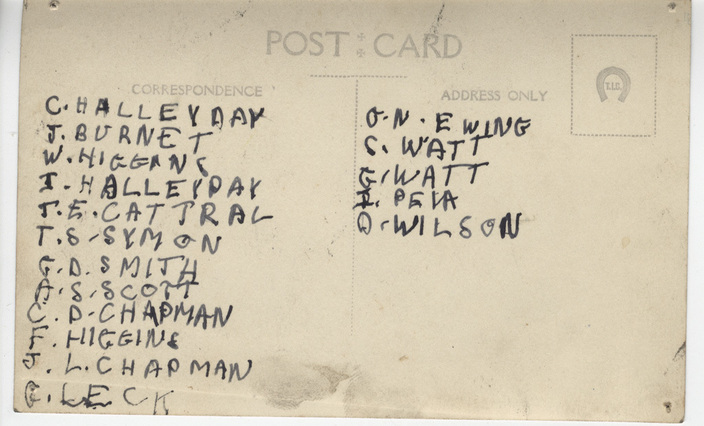 POST CARD
CORRESPONDENCE
C. HALLEYDAY
J. BURNET
W. HIGGANS
I. HALLEYDAY
T. E. CATTRAL
T. S. SYMON
G. D. SMITH
A. S. SCOTT
C. D. CHAPMAN
F. HIGGINS
J. L. CHAPMAN
G. LECK
ADDRESS ONLY
T.I.C.
G. N. EWING
S. WATT
G. WATT
D. WILSON